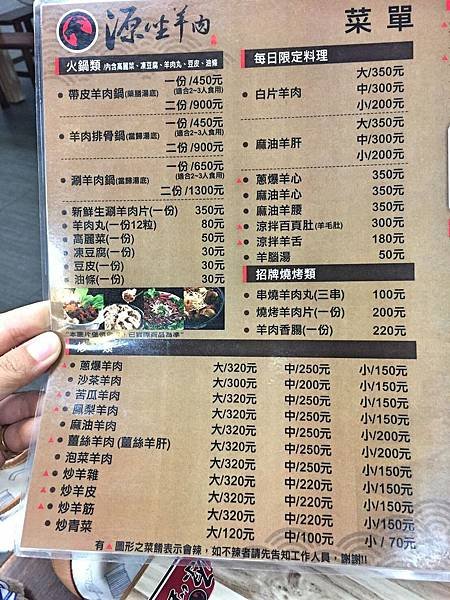 源坐羊肉
菜單
火鍋類/內含高麗菜、凍豆腐、羊肉丸、豆皮、油條
• 帶皮羊肉鍋(藥膳湯底) 一份 /450元
(適合2~3人食用)
二份 /900元
• 羊肉排骨鍋(當歸湯底) 一份 /450元
(適合2~3人食用)
二份 /900元
• 涮羊肉鍋(當歸湯底) 一份 /650元
(適合2~3人食用)
二份 /1300元
• 新鮮生涮羊肉片(一份) 350元
• 羊肉丸(一份12粒) 80元
• 高麗菜(一份) 50元
• 凍豆腐(一份) 30元
• 豆皮(一份) 30元
• 油條(一份) 30元
每日限定料理
• 白片羊肉 大/350元
中/300元
小/200元
• 麻油羊肝 大/350元
中/300元
小/200元
▲• 蔥爆羊心 350元
• 麻油羊心 350元
• 麻油羊腰 350元
▲• 涼拌百頁肚(羊毛肚) 300元
▲• 涼拌羊舌 180元
• 羊腦湯 50元
招牌燒烤類
• 串燒羊肉丸(三串) 100元
• 燒烤羊肉片(一份) 200元
• 羊肉香腸(一份) 220元
類
▲• 蔥爆羊肉 大/320元 中/250元 小/150元
• 沙茶羊肉 大/300元 中/200元 小/150元
▲• 苦瓜羊肉 大/320元 中/250元 小/150元
▲• 鳳梨羊肉 大/320元 中/250元 小/150元
• 麻油羊肉 大/320元 中/250元 小/200元
▲• 薑絲羊肉 (薑絲羊肝) 大/320元 中/250元 小/200元
• 泡菜羊肉 大/320元 中/250元 小/150元
▲• 炒羊雜 大/320元 中/220元 小/150元
▲• 炒羊皮 大/320元 中/220元 小/150元
▲• 炒羊筋 大/320元 中/220元 小/150元
• 炒青菜 大/120元 中/100元 小 / 70元
有▲圖形之菜餚表示會辣，如不辣者請先告知工作人員，謝謝!!